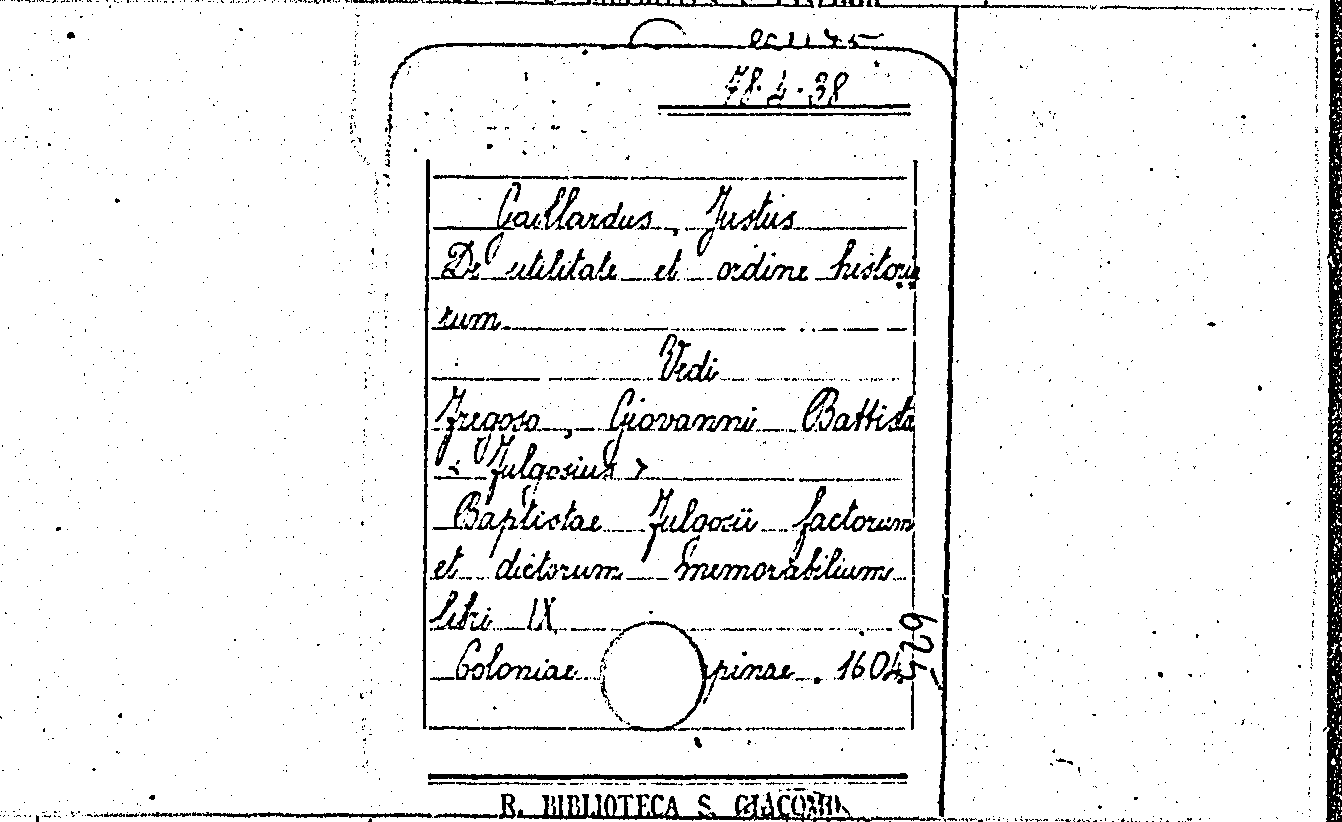 78.4.38
Gaillardus, Justus
De utilitate et ordine historia
rum
Vedi
Fregoso, Giovanni Battista
< Fulgosius >
Baptistae Fulgosii factorum
et dictorum memorabilium
libri IX
Coloniae pinae. 1604
R. BIBLIOTECA S. GIACOMO